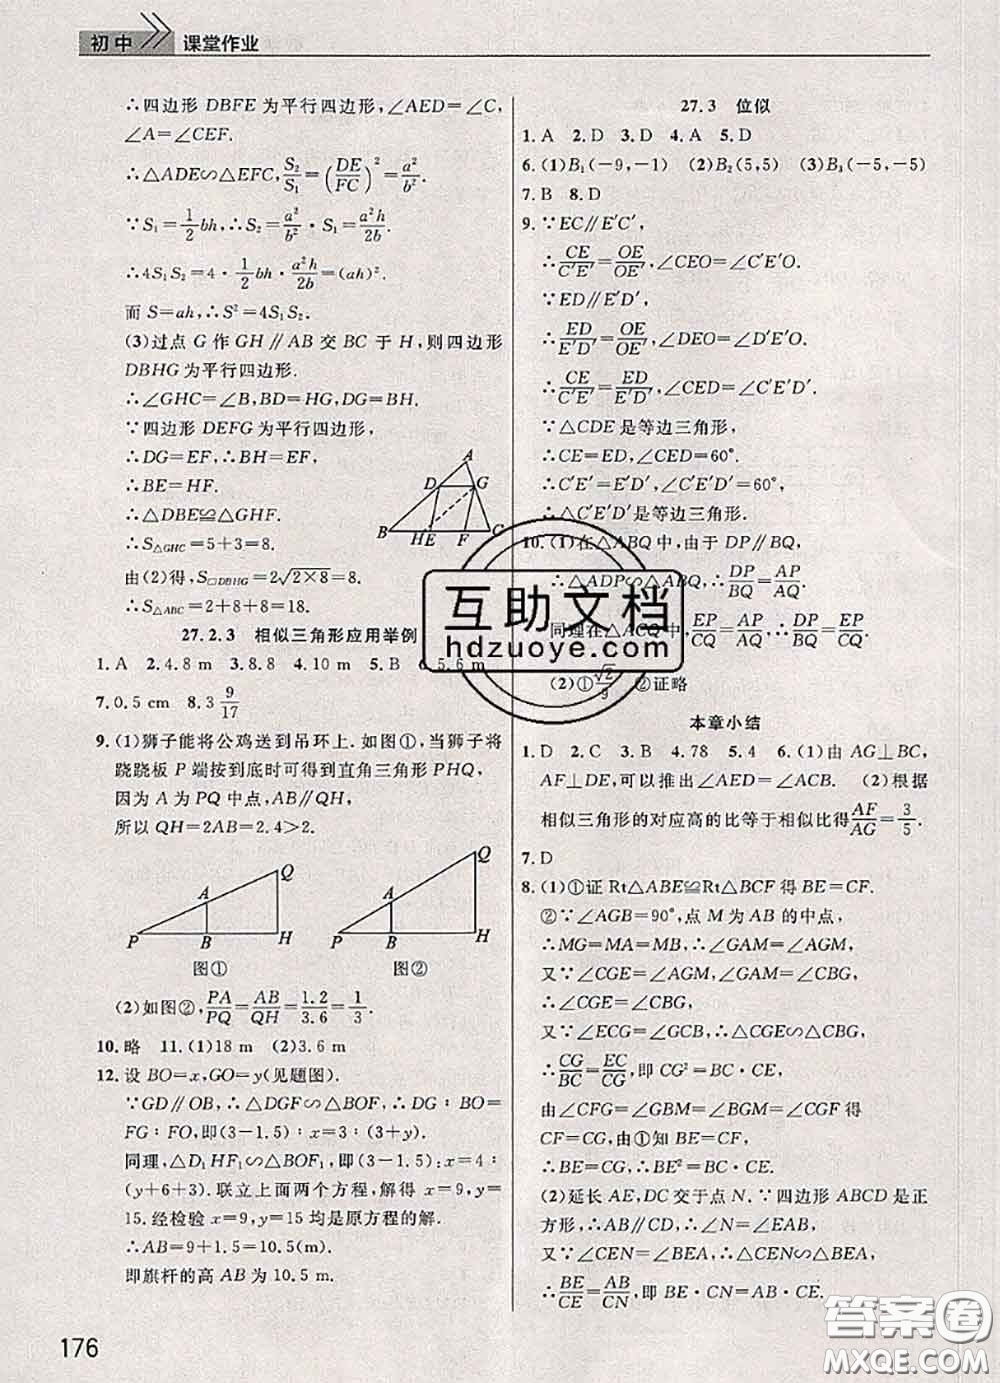 初中 课堂作业
∴四边形 DBFE 为平行四边形,∠AED=∠C,
∠A=∠CEF.
∴△ADE∽△EFC,S₂/S₁=(DE/FC)²=a²/b².
∵S₁=1/2bh,∴S₂=a²/b²·S₁=a²h/2b.
∴4S₁S₂=4·1/2bh·a²h/2b=(ah)².
而 S=ah,∴S²=4S₁S₂.
(3)过点 G 作 GH∥AB 交 BC 于 H,则四边形
DBHG 为平行四边形.
∴∠GHC=∠B,BD=HG,DG=BH.
∵四边形 DEFG 为平行四边形,
∴DG=EF,∴BH=EF.
∴BE=HF.
∴△DBE≌△GHF.
∴S△GHC=5+3=8.
由(2)得,S□DBHG=2√2×8=8.
∴S△ABC=2+8+8=18.
A
D G
B H E F C
27.2.3 相似三角形应用举例
1.A 2.4.8 m 3.8.8 4.10 m 5.B 6.5.6 m
7.0.5 cm 8.3 9/17
9.(1)狮子能将公鸡送到吊环上.如图①,当狮子将
跷跷板 P 端按到底时可得到直角三角形 PHQ,
因为 A 为 PQ 中点,AB∥QH,
所以 QH=2AB=2.4>2.
Q
A
P B H
图①
Q
A
P B H
图②
(2)如图②,PA/PQ=AB/QH=1.2/3.6=1/3.
10.略 11.(1)18 m (2)3.6 m
12.设 BO=x,GO=y(见题图).
∵GD∥OB,∴△DGF∽△BOF,∴DG∶BO=
FG∶FO,即(3-1.5)∶x=3∶(3+y).
同理,△D₁HF₁∽△BOF₁,即(3-1.5)∶x=4∶
(y+6+3).联立上面两个方程,解得 x=9,y=
15.经检验 x=9,y=15 均是原方程的解.
∴AB=9+1.5=10.5(m).
即旗杆的高 AB 为 10.5 m.
176
27.3 位似
1.A 2.D 3.D 4.A 5.D
6.(1)B₁(-9,-1) (2)B₂(5,5) (3)B₃(-5,-5)
7.B 8.D
9.∵EC∥E′C′,
∴CE/C′E′=OE/OE′,∠CEO=∠C′E′O.
∵ED∥E′D′,
∴ED/E′D′=OE/OE′,∠DEO=∠D′E′O.
∴CE/C′E′=ED/E′D′,∠CED=∠C′E′D′.
∵△CDE 是等边三角形,
∴CE=ED,∠CED=60°.
∴C′E′=E′D′,∠C′E′D′=60°,
∴△C′E′D′是等边三角形.
10.(1)在△ABQ 中,由于 DP∥BQ,
∴△ADP∽△ABQ,∴DP/BQ=AP/AQ.
同理在△ACQ 中,EP/CQ=AP/AQ,∴DP/BQ=EP/CQ.
(2)①√2/9 ②证略
本章小结
1.D 2.C 3.B 4.78 5.4 6.(1)由 AG⊥BC,
AF⊥DE,可以推出∠AED=∠ACB. (2)根据
相似三角形的对应高的比等于相似比得AF/AG=3/5.
7.D
8.(1)①证 Rt△ABE≌Rt△BCF 得 BE=CF.
②∵∠AGB=90°,点 M 为 AB 的中点,
∴MG=MA=MB,∴∠GAM=∠AGM,
又∵∠CGE=∠AGM,∠GAM=∠CBG,
∴∠CGE=∠CBG,
又∵∠ECG=∠GCB,∴△CGE∽△CBG,
∴CG/BC=EC/CG,即 CG²=BC·CE,
由∠CFG=∠GBM=∠BGM=∠CGF 得
CF=CG,由①知 BE=CF,
∴BE=CG,∴BE²=BC·CE.
(2)延长 AE,DC 交于点 N.∵四边形 ABCD 是正
方形,∴AB∥CD,∴∠N=∠EAB,
又∵∠CEN=∠BEA,∴△CEN∽△BEA,
∴BE/CE=AB/CN,即 BE·CN=AB·CE.
互助文档
hdzuoye.com
答案圈
MXQE.COM